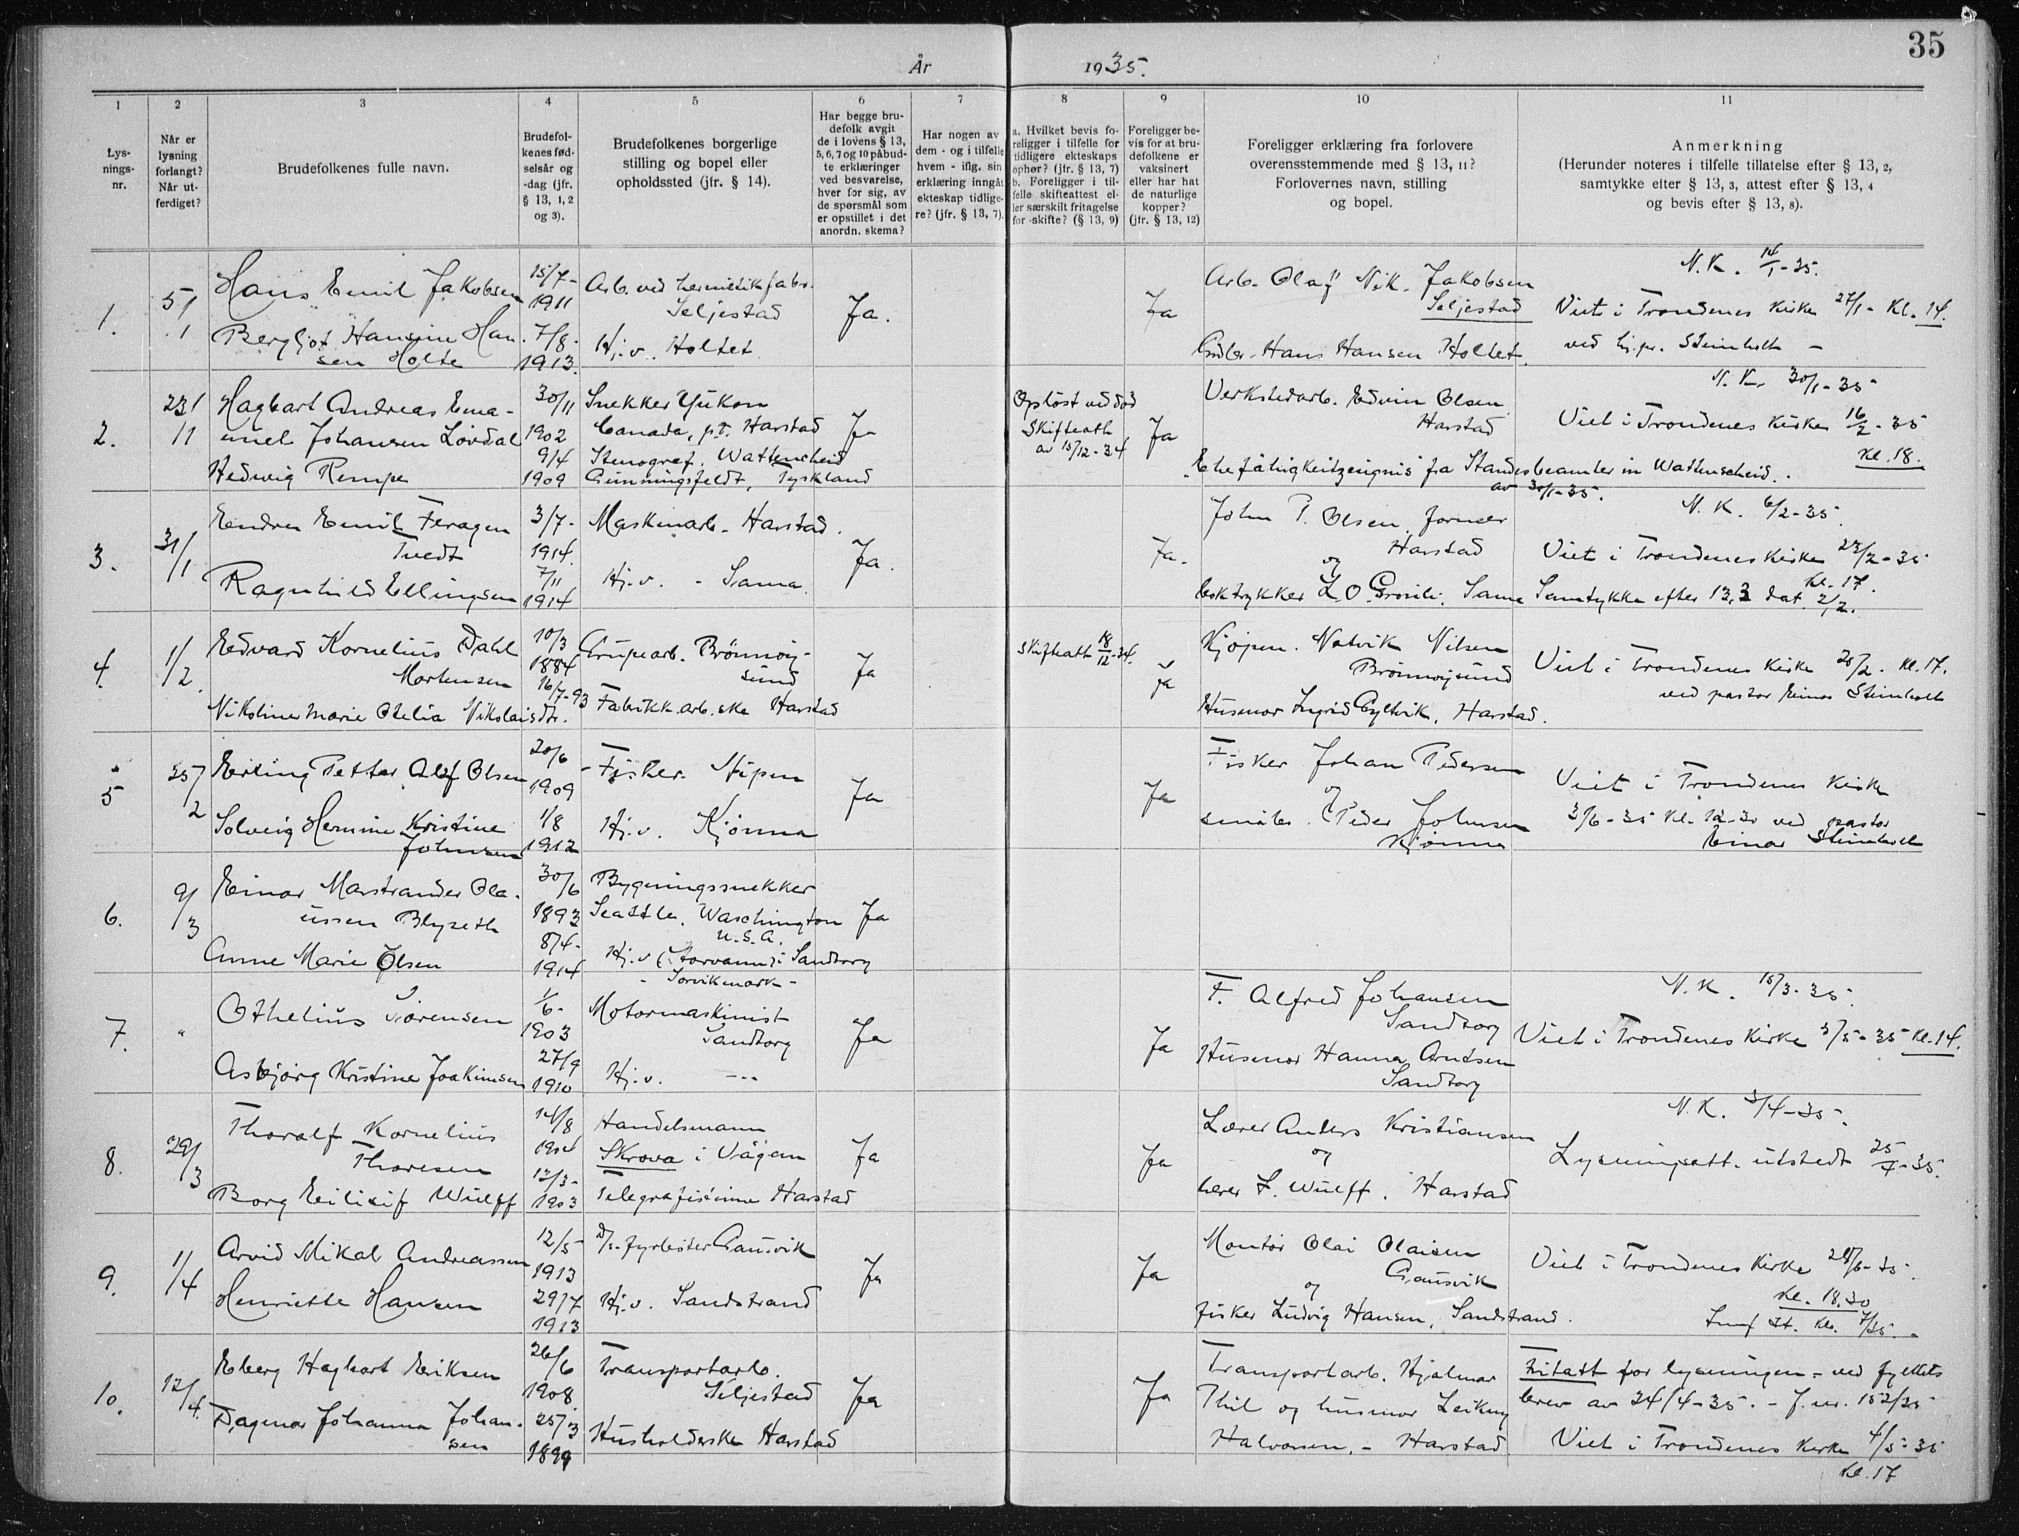 35
År 1935.
1 2 3 4 5 6 7 8 9 10 11
Lys-
nings-
nr.
Når er
lysning
forlangt?
Når ut-
ferdiget?
Brudefolkenes fulle navn.
Brudefol-
kenes fød-
selsår og
-dag (jfr.
§ 13, 1, 2
og 3).
Brudefolkenes borgerlige
stilling og bopel eller
opholdssted (jfr. § 14).
Har begge bru-
defolk avgit
de i lovens § 13,
5, 6, 7 og 10 påbud-
te erklæringer
ved besvarelse,
hver for sig, av
de spørsmål som
er opstillet i det
anordn. skema?
Har nogen av
dem - og i tilfelle
hvem - iflg. sin
erklæring inngåt
ekteskap tidlige-
re? (jfr. § 13, 7).
a. Hvilket bevis fo-
religger i tilfelle for
tidligere ekteskaps
ophør? (jfr. § 13, 7)
b. Foreligger i til-
felle skifteattest el-
ler særskilt fritagelse
for skifte? (§ 13, 9)
Foreligger be-
vis for at bru-
defolkene er
vaksinert
eller har hat
de naturlige
kopper?
(jfr. § 13, 12)
Foreligger erklæring fra forlovere
overensstemmende med § 13, 11?
Forlovernes navn, stilling
og bopel.
Anmerkning
(Herunder noteres i tilfelle tillatelse efter § 13, 2,
samtykke efter § 13, 3, attest efter § 13, 4
og bevis efter § 13, 8).
1. 5/1
Hans Emil Jakobsen 15/7- 1911 Arb. ved hermetikfabr. Seljestad
Bergljot Hansine Han-
sen Holte 7/8- 1913 Hj.v. Holtet
Ja. Ja
Arb. Olaf Nik. Jakobsen
Seljestad
Hans Hansen Holtet
N.K. 14/1-35.
Viet i Trondenes Kirke 27/1- Kl. 14.
ved hj.pr. Steinholt -
2. 23/1
Hagbart Andreas Ema-
nuel Johansen Løvdal 30/11 1902 Snekker Yukon
Canada, p.t. Harstad
Hedwig Rempe 9/4 1909 Stenograf. Wattenscheid
Günnigfeldt, Tyskland
Ja
Opløst ved død
Skifteatt.
av 15/12-34
Ja
Verkstedarb. Edvin Olsen
Harstad
"Ehefähigkeitzeugnis" fra Standesbeamter in Wattenscheid.
av 30/1-35.
N.K. 30/1-35
Viet i Trondenes Kirke 16/2-35
Kl. 18.
3. 31/1
Endre Emil Feragen
Tvedt 3/7- 1914. Maskinarb. Harstad.
Ragnhild Ellingsen 7/11 1914 Hj.v. - Sama
Ja. Ja.
John P. Olsen, former
Harstad
og
boktrykker L.O. Grønli. Sama
N.K. 6/2-35.
Viet i Trondenes Kirke 23/2-35
Kl. 17.
Samtykke efter 13,3 dat. 2/2.
4. 1/2.
Edvard Kornelius Dahl
Mortensen 10/3 1884 Grupearb. Brønnøy-
sund
Nikoline Marie Otelia Nikolaisdtr. 16/7-93 Fabrikk.arb.ske Harstad
Ja
Skifteatt. 18/12-34.
Ja
Kjøpm. Natvik Nilsen
Brønnøysund
Husmor Ingrid Gyltvik, Harstad.
Viet i Trondenes Kirke 20/2. Kl. 17.
ved pastor Einar Steinholt
5 25/2
Erling Petter Olaf Olsen 20/6 1909 - Fisker. Nipen
Solveig Hermine Kristine
Johnsen 1/8 1912 Hj.v. Kjønna
Ja Ja
Fisker Johan Pedersen
og
småbr. Peder Johnsen
Kjønna
Viet i Trondenes Kirke
3/6-35 Kl. 12-30 ved pastor
Einar Steinholt
6. 9/3
Einar Marstrander Ola-
ussen Blyseth 30/6 1893 Bygningssnekker
Seattle, Waschington
U.S.A.
Anne Marie Olsen 8/4- 1914 Hj.v. (Storvann) i Sandtorg
- Sørvikmark -
Ja
7. "
Othelius Sørensen 1/6- 1903 Motormaskinist
Sandtorg
Asbjørg Kristine Joakimsen 27/9 1910 Hj.v. ---
Ja Ja
F. Alfred Johansen
Sandtorg
Husmor Hanna Arntsen
Sandtorg
N.K. 15/3-35.
Viet i Trondenes Kirke 3/5-35 Kl. 14.
8. 29/3
Thoralf Kornelius
Thoresen 14/8 1904 Handelsmann
Skrova i Vågan
Borg Eiliv Wulff 12/3- 1903 Telegrafistinne Harstad
Ja Ja
Lærer Anders Kristiansen
og
lærer F. Wulff. Harstad
N.K. 3/4-35.
Lysningsatt. utstedt 25/4-35.
9. 1/4
Arvid Mikal Andreassen 12/5 1913 D/s. fyrbøter Gausvik
Henriette Hansen 29/7 1913 Hj.v. Sandstrand
Ja Ja
Montør Olai Olaisen
Gausvik
og
fisker Ludvig Hansen, Sandstrand.
Viet i Trondenes Kirke 28/6-35.
Kl. 18.30
10. 12/4.
Eberg Hagbart Eriksen 26/6 1908. Transportarb.
Seljestad
Dagmar Johanna Johan-
sen 25/3 1899 Husholderske Harstad
Ja Ja
Transportarb. Hjalmar
Thil og husmor Leikny
Halvorsen. - Harstad
Fritatt for lysningen - ved fylkets
brev av 24/4-35. - J.nr. 152/35
Viet i Trondenes Kirke 4/5-35
Kl. 17